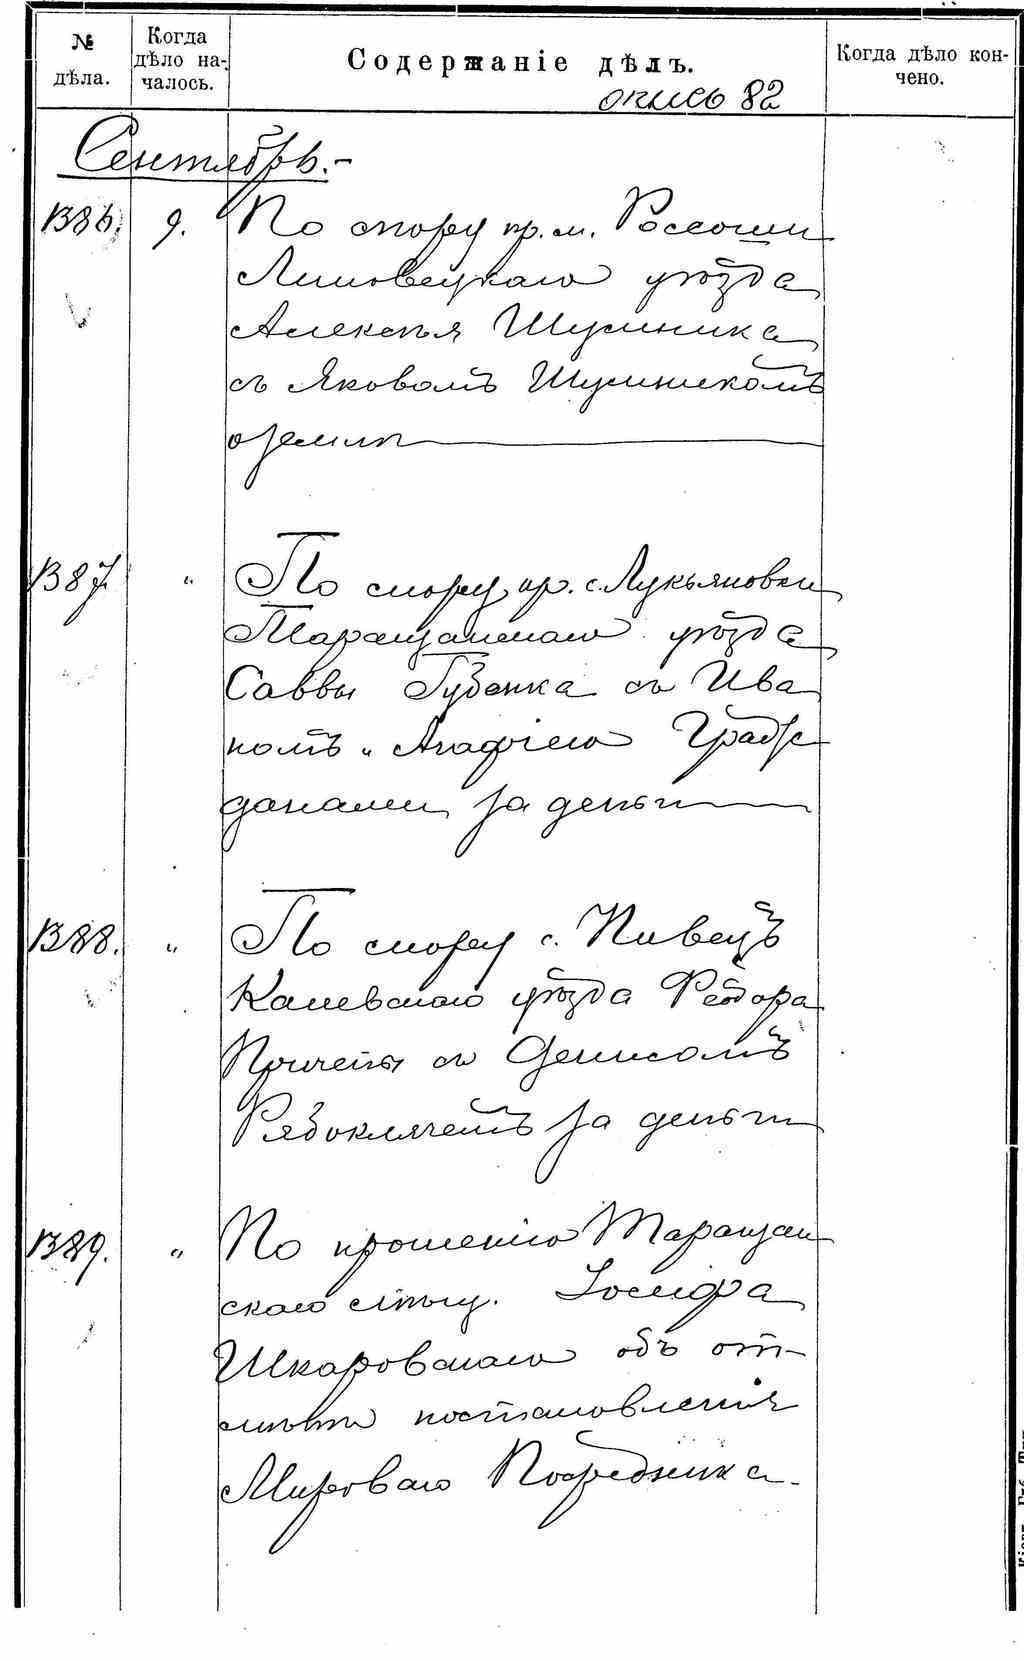 № дѣла.
Когда дѣло на-
чалось.
Содержаніе дѣлъ.
Когда дѣло кон-
чено.
опись 82
Сентябрь.-
1386.
9.
По спору кр. м. Россоши
Липовецкаго уѣзда
Алексѣя Шусиника
съ Яковомъ Шусиникомъ
о землѣ
1387.
"
По спору кр. с. Лукьяновки
Таращанскаго уѣзда
Саввы Губенка съ Ива
номъ и Агафіею Гражс
данами за деньги
1388.
"
По спору с. Пивецъ
Каневскаго уѣзда Ѳеодора
Причепы съ Денисомъ
Рябоклячемъ за деньги
1389.
"
По прошенію Таращан
скаго мѣщ. Іосифа
Шкаровскаго объ от-
мѣнѣ постановленія
Мироваго Посредника-